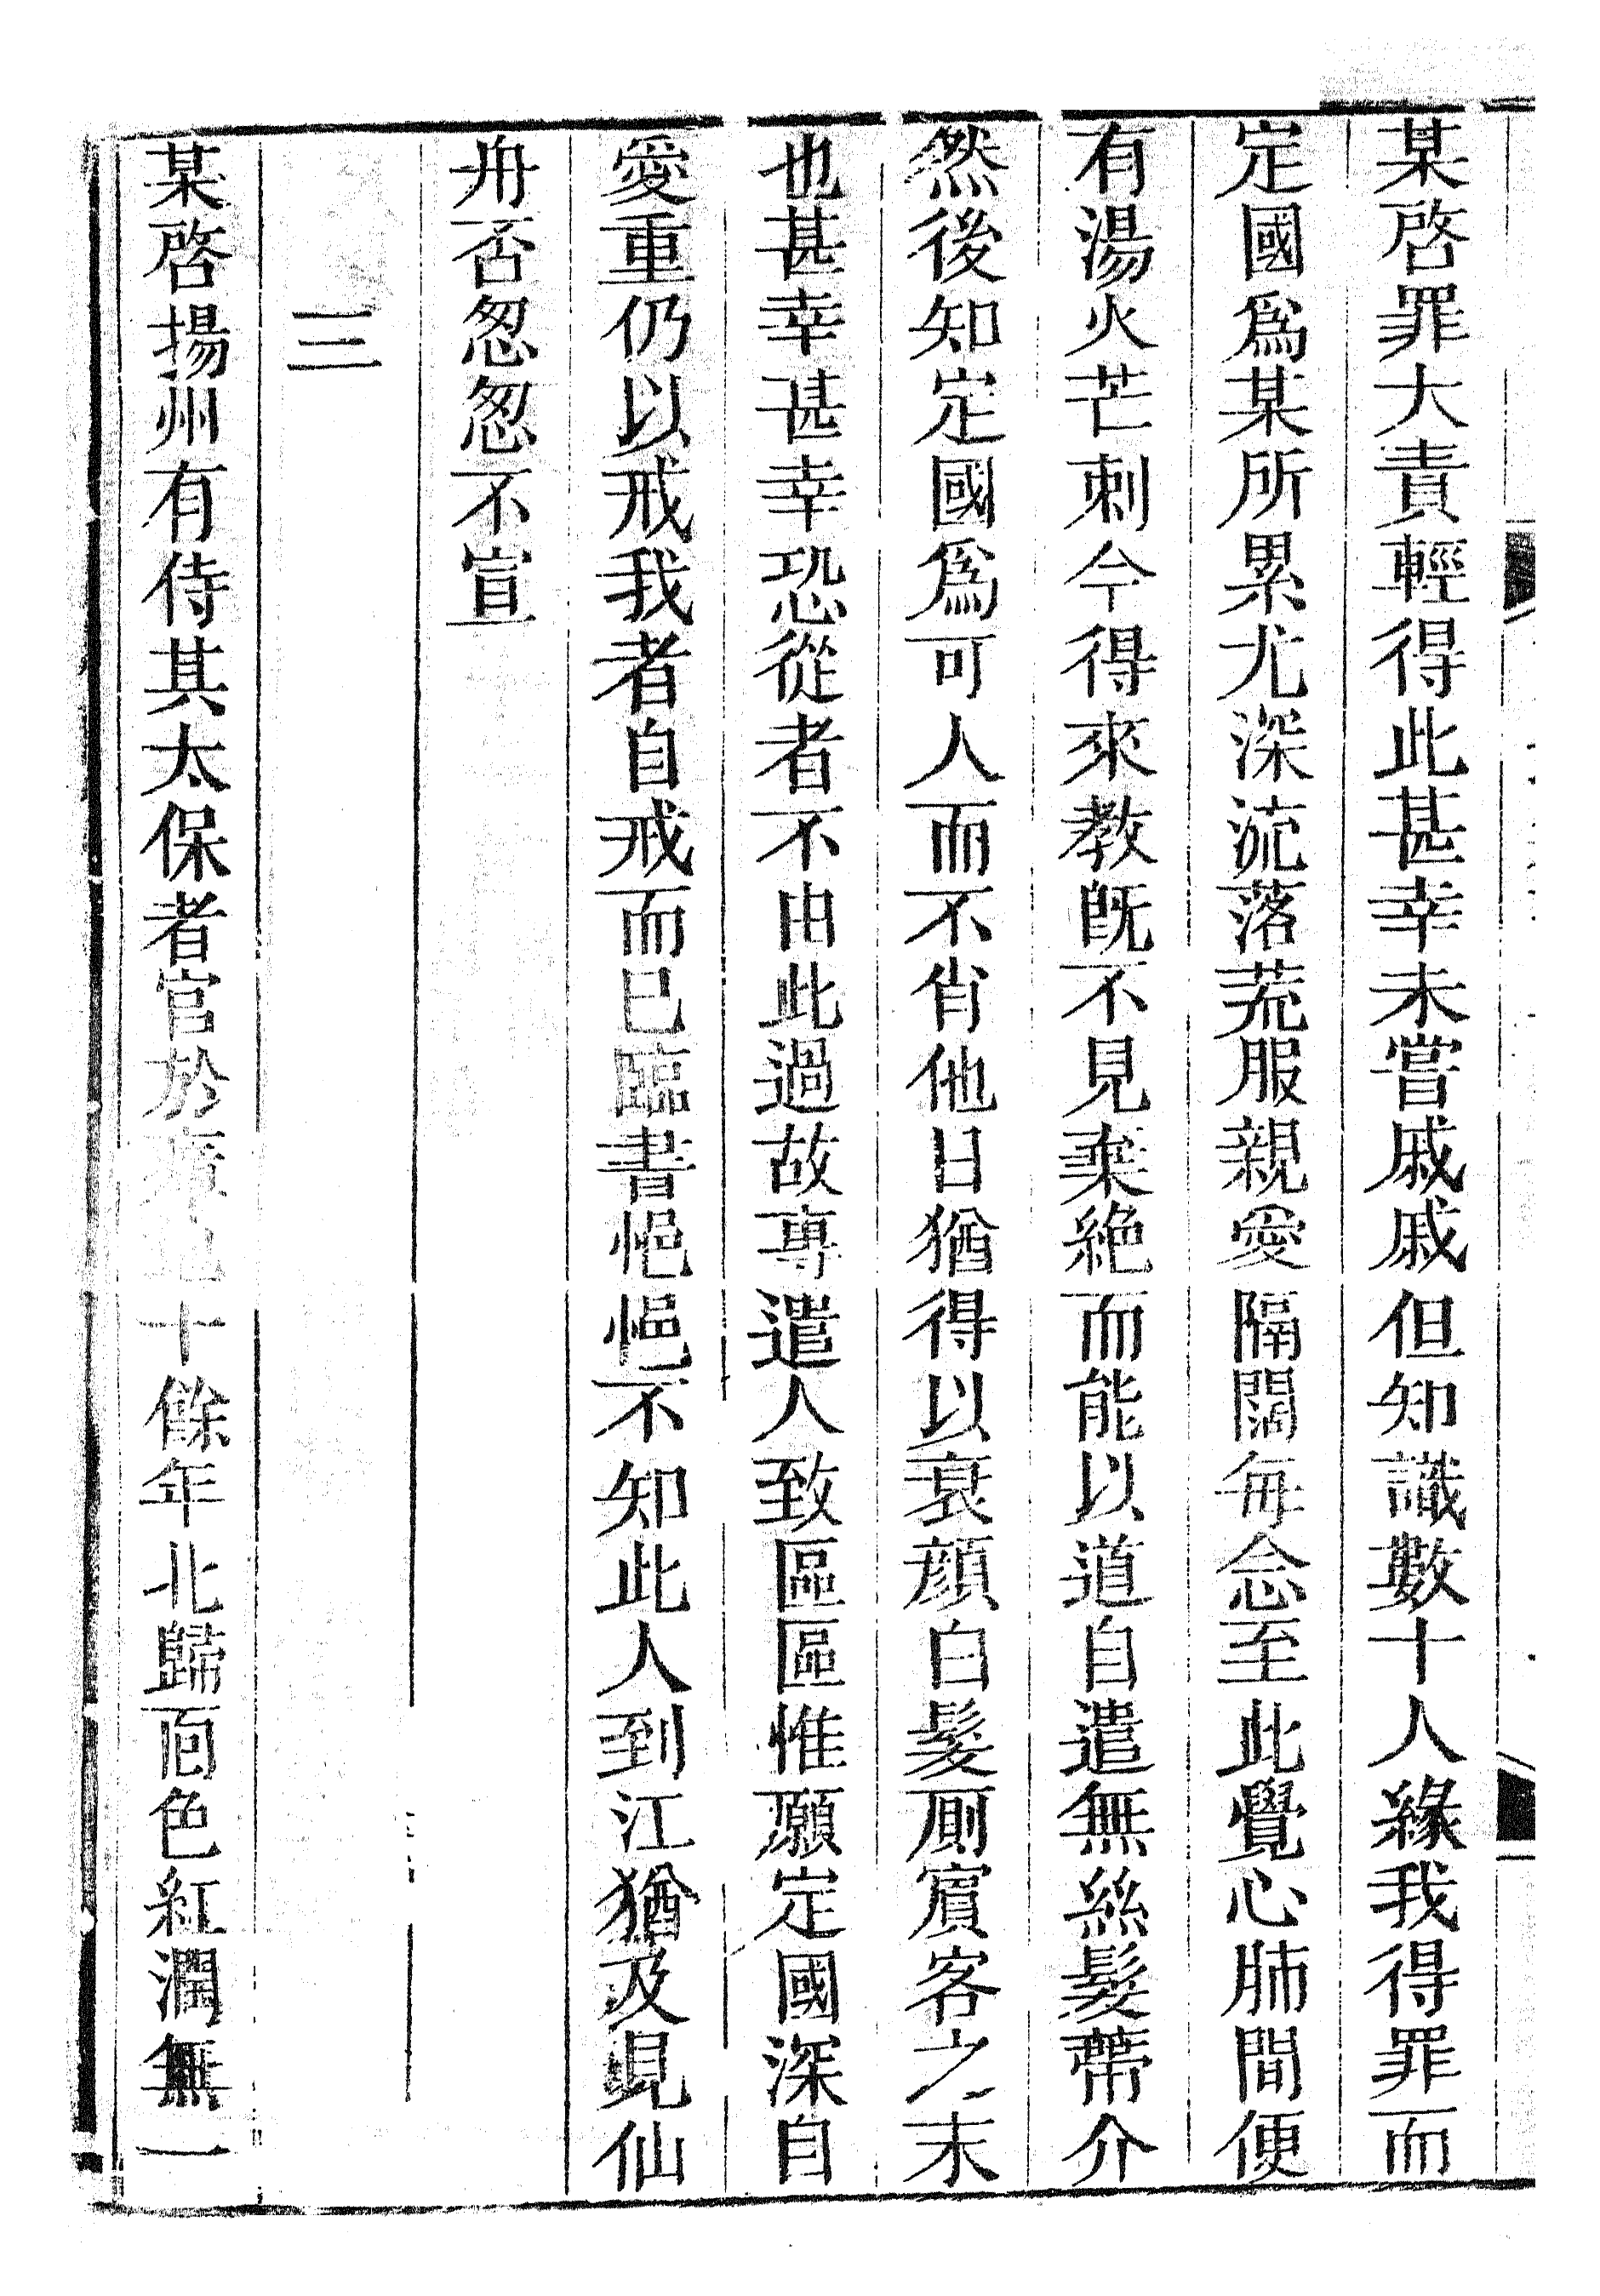 某啓罪大責輕得此甚幸未嘗戚戚但知識數十人緣我得罪而
定國爲某所累尤深流落荒服親愛隔闊每念至此覺心肺間便
有湯火芒刺今得來教旣不見棄絶而能以道自遣無絲髮蔕介
然後知定國爲可人而不肖他日猶得以衰顔白髮厠賓客之末
也甚幸甚幸恐從者不由此過故專遣人致區區惟願定國深自
愛重仍以戒我者自戒而已臨書悒悒不知此人到江猶及見仙
舟否怱怱不宣
三
某啓揚州有侍其太保者官於瘴地十餘年北歸面色紅潤無一